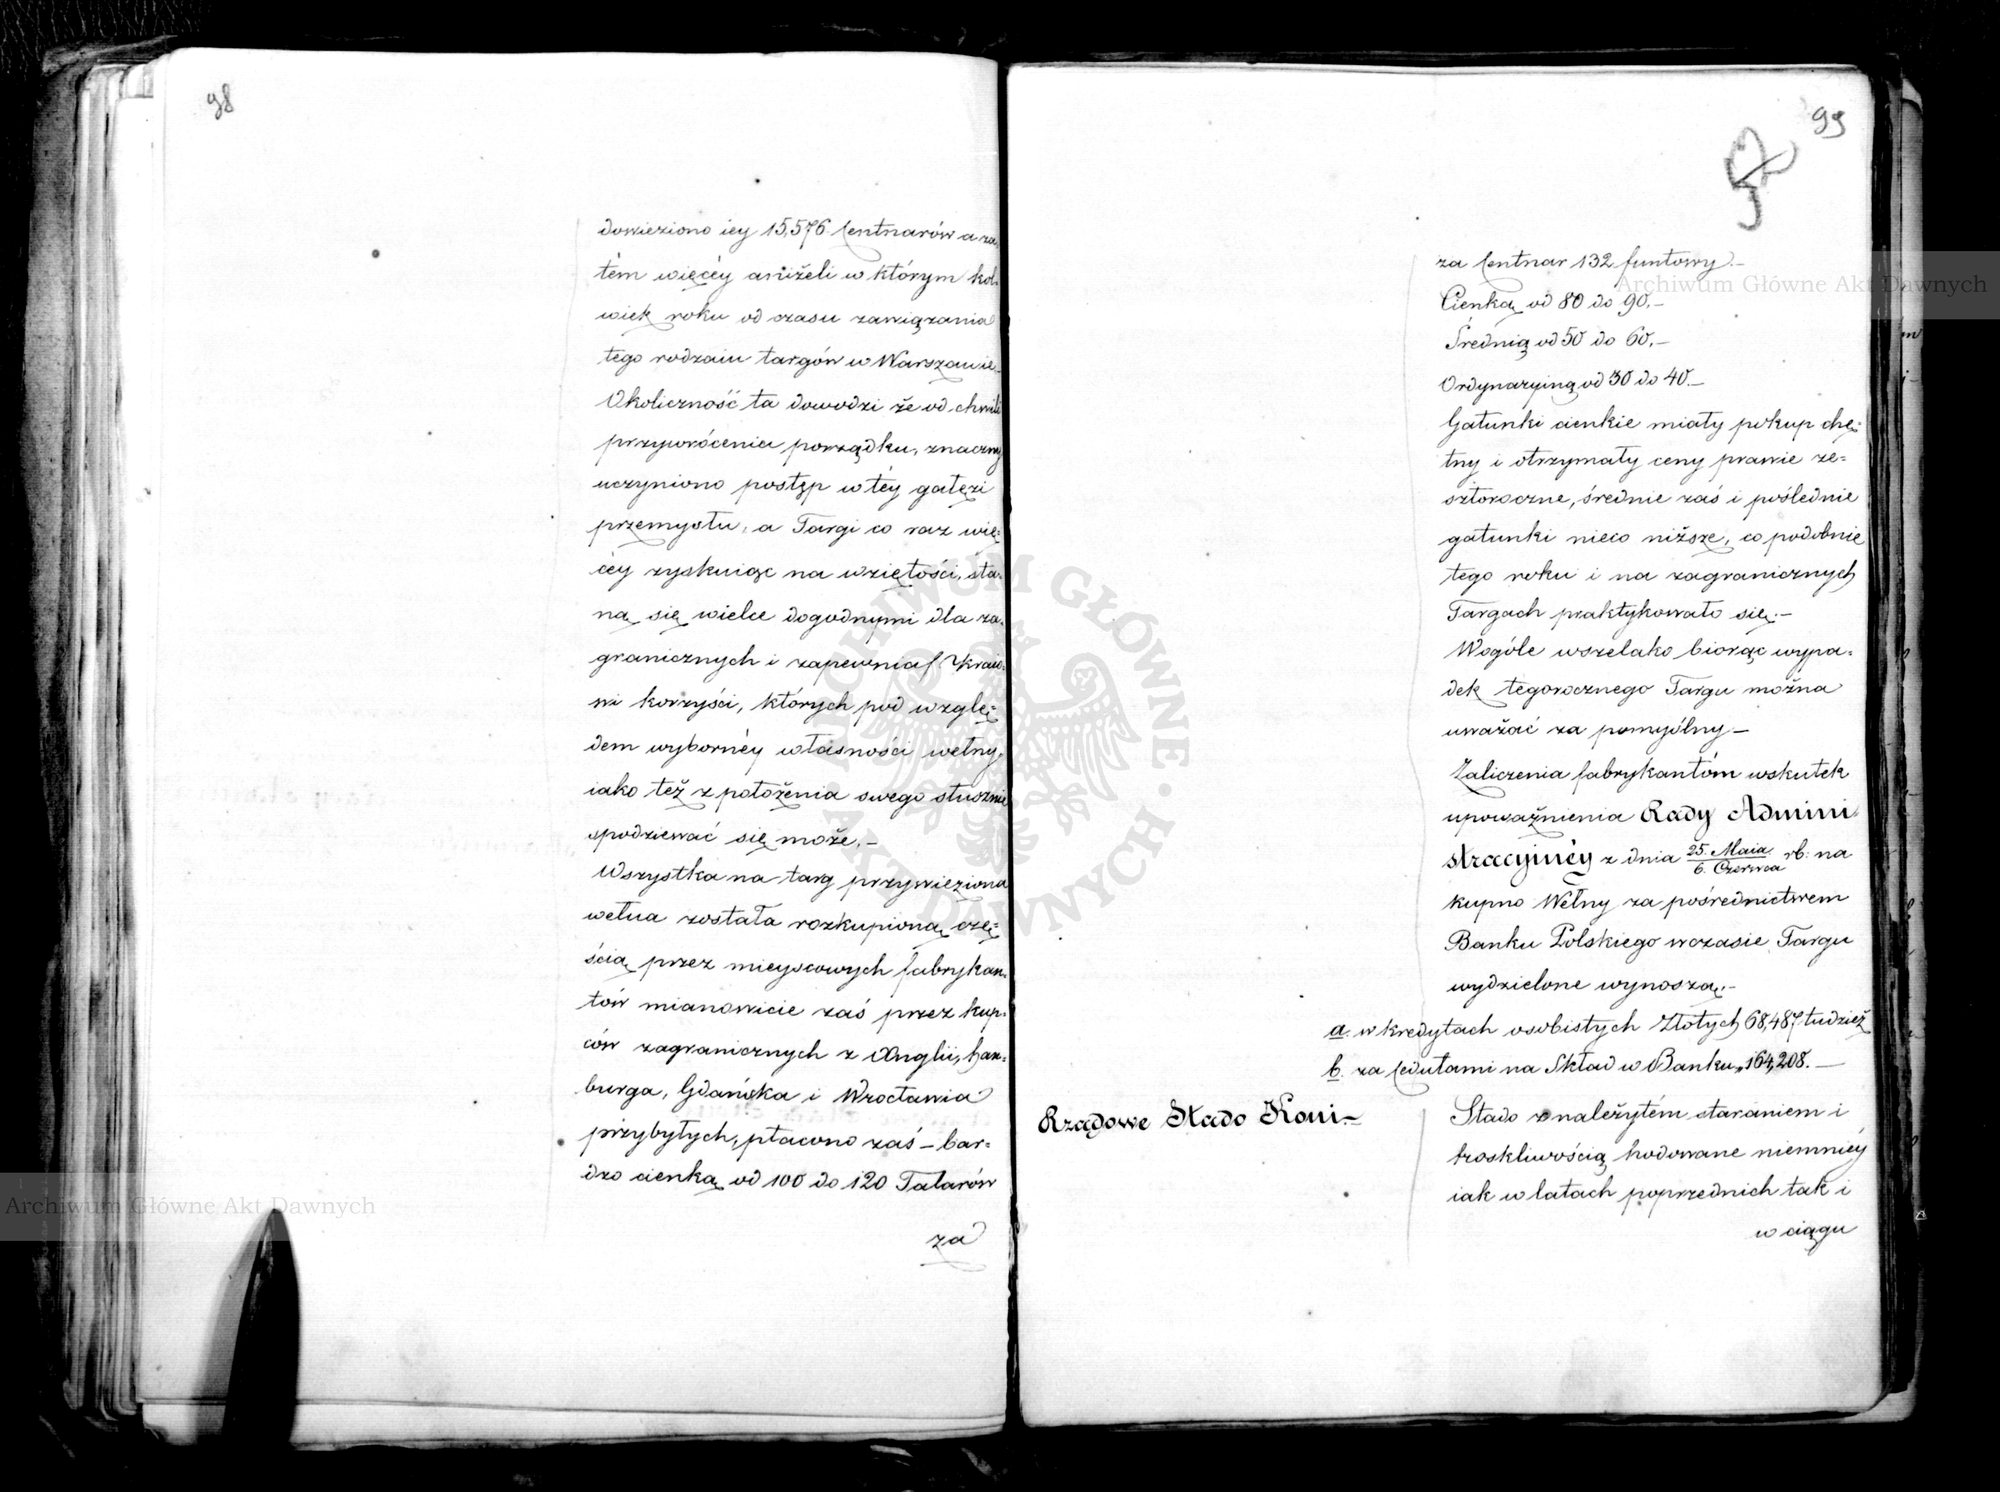 98
dowieziono iey 15,576 Centnarów a za=
tém więcéy aniżeli w którym kol=
wiek roku od czasu zawiązania
tego rodzaiu targów w Warszawie_
Okoliczność ta dowodzi że od chwili
przywrócenia porządku, znaczny
uczyniono postęp w téy gałęzi
przemysłu, a Targi co raz wię=
céy zyskuiąc na wziętości, sta=
ną się wielce dogodnymi dla za=
granicznych i zapewnią Kraio=
wi korzyści, których pod wzglę=
dem wybornéy własności wełny,
iako też z położenia swego słusznie
spodziewać się może._
Wszystka na targ przywieziona
wełna została rozkupioną czę=
ścią przez mieyscowych fabrykan=
tów mianowicie zaś przez kup=
ców zagranicznych z Anglii, Ham=
burga, Gdańska i Wrocławia
przybyłych, płacono zaś – bar=
dzo cienką od 100 do 120 Talarów
za
99
za Centnar 132 funtowy._
Cienką od 80 do 90._
Średnią od 50 do 60._
Ordynaryiną od 30 do 40._
Gatunki cienkie miały pokup chę=
tny i otrzymały ceny prawie ze=
szłoroczne, średnie zaś i poślednie
gatunki nieco niższe, co podobnie
tego roku i na zagranicznych
Targach praktykowało się._
Wogóle wszelako biorąc wypa=
dek tegorocznego Targu można
uważać za pomyślny_
Zaliczenia fabrykantóm wskutek
upoważnienia Rady Admini=
stracyinéy z dnia 25. Maia / 6. Czerwca rb: na
kupno Wełny za pośrednictwem
Banku Polskiego wczasie Targu
wydzielone wynoszą._
a. w kredytach osobistych Złotych 68,487 tudzież
b. za Cedułami na Skład w Banku „ 164,208._
Rządowe Stado Koni._
Stado z należytém staraniem i
troskliwością hodowane niemniéy
iak w latach poprzednich tak i
w ciągu
Archiwum Główne Akt Dawnych
Archiwum Główne Akt Dawnych
ARCHIWUM GŁÓWNE AKT DAWNYCH